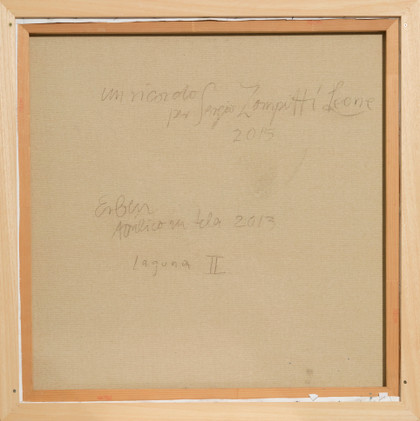 un ricordo
per Sergio Zompitti Leone
2015
ErBen
Acrilico su tela 2013
Laguna II